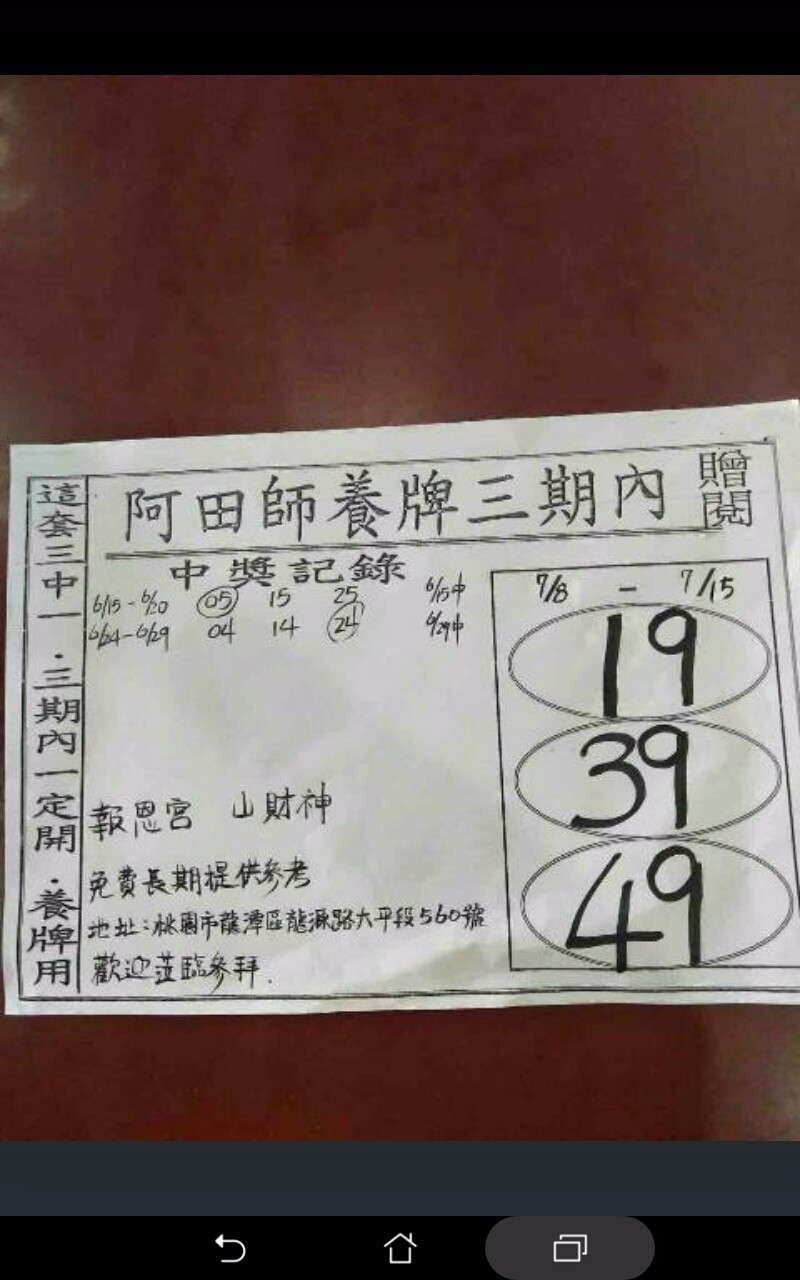 阿田師養牌三期內
贈閱
這套三中一．三期內一定開．養牌用
中獎記錄
6/15-6/20 05 15 25 6/15中
6/24-6/29 04 14 24 6/29中
7/8 - 7/15
19
39
49
報恩宮 山財神
免費長期提供參考
地址：桃園市龍潭區龍源路大平段560號
歡迎蒞臨參拜.